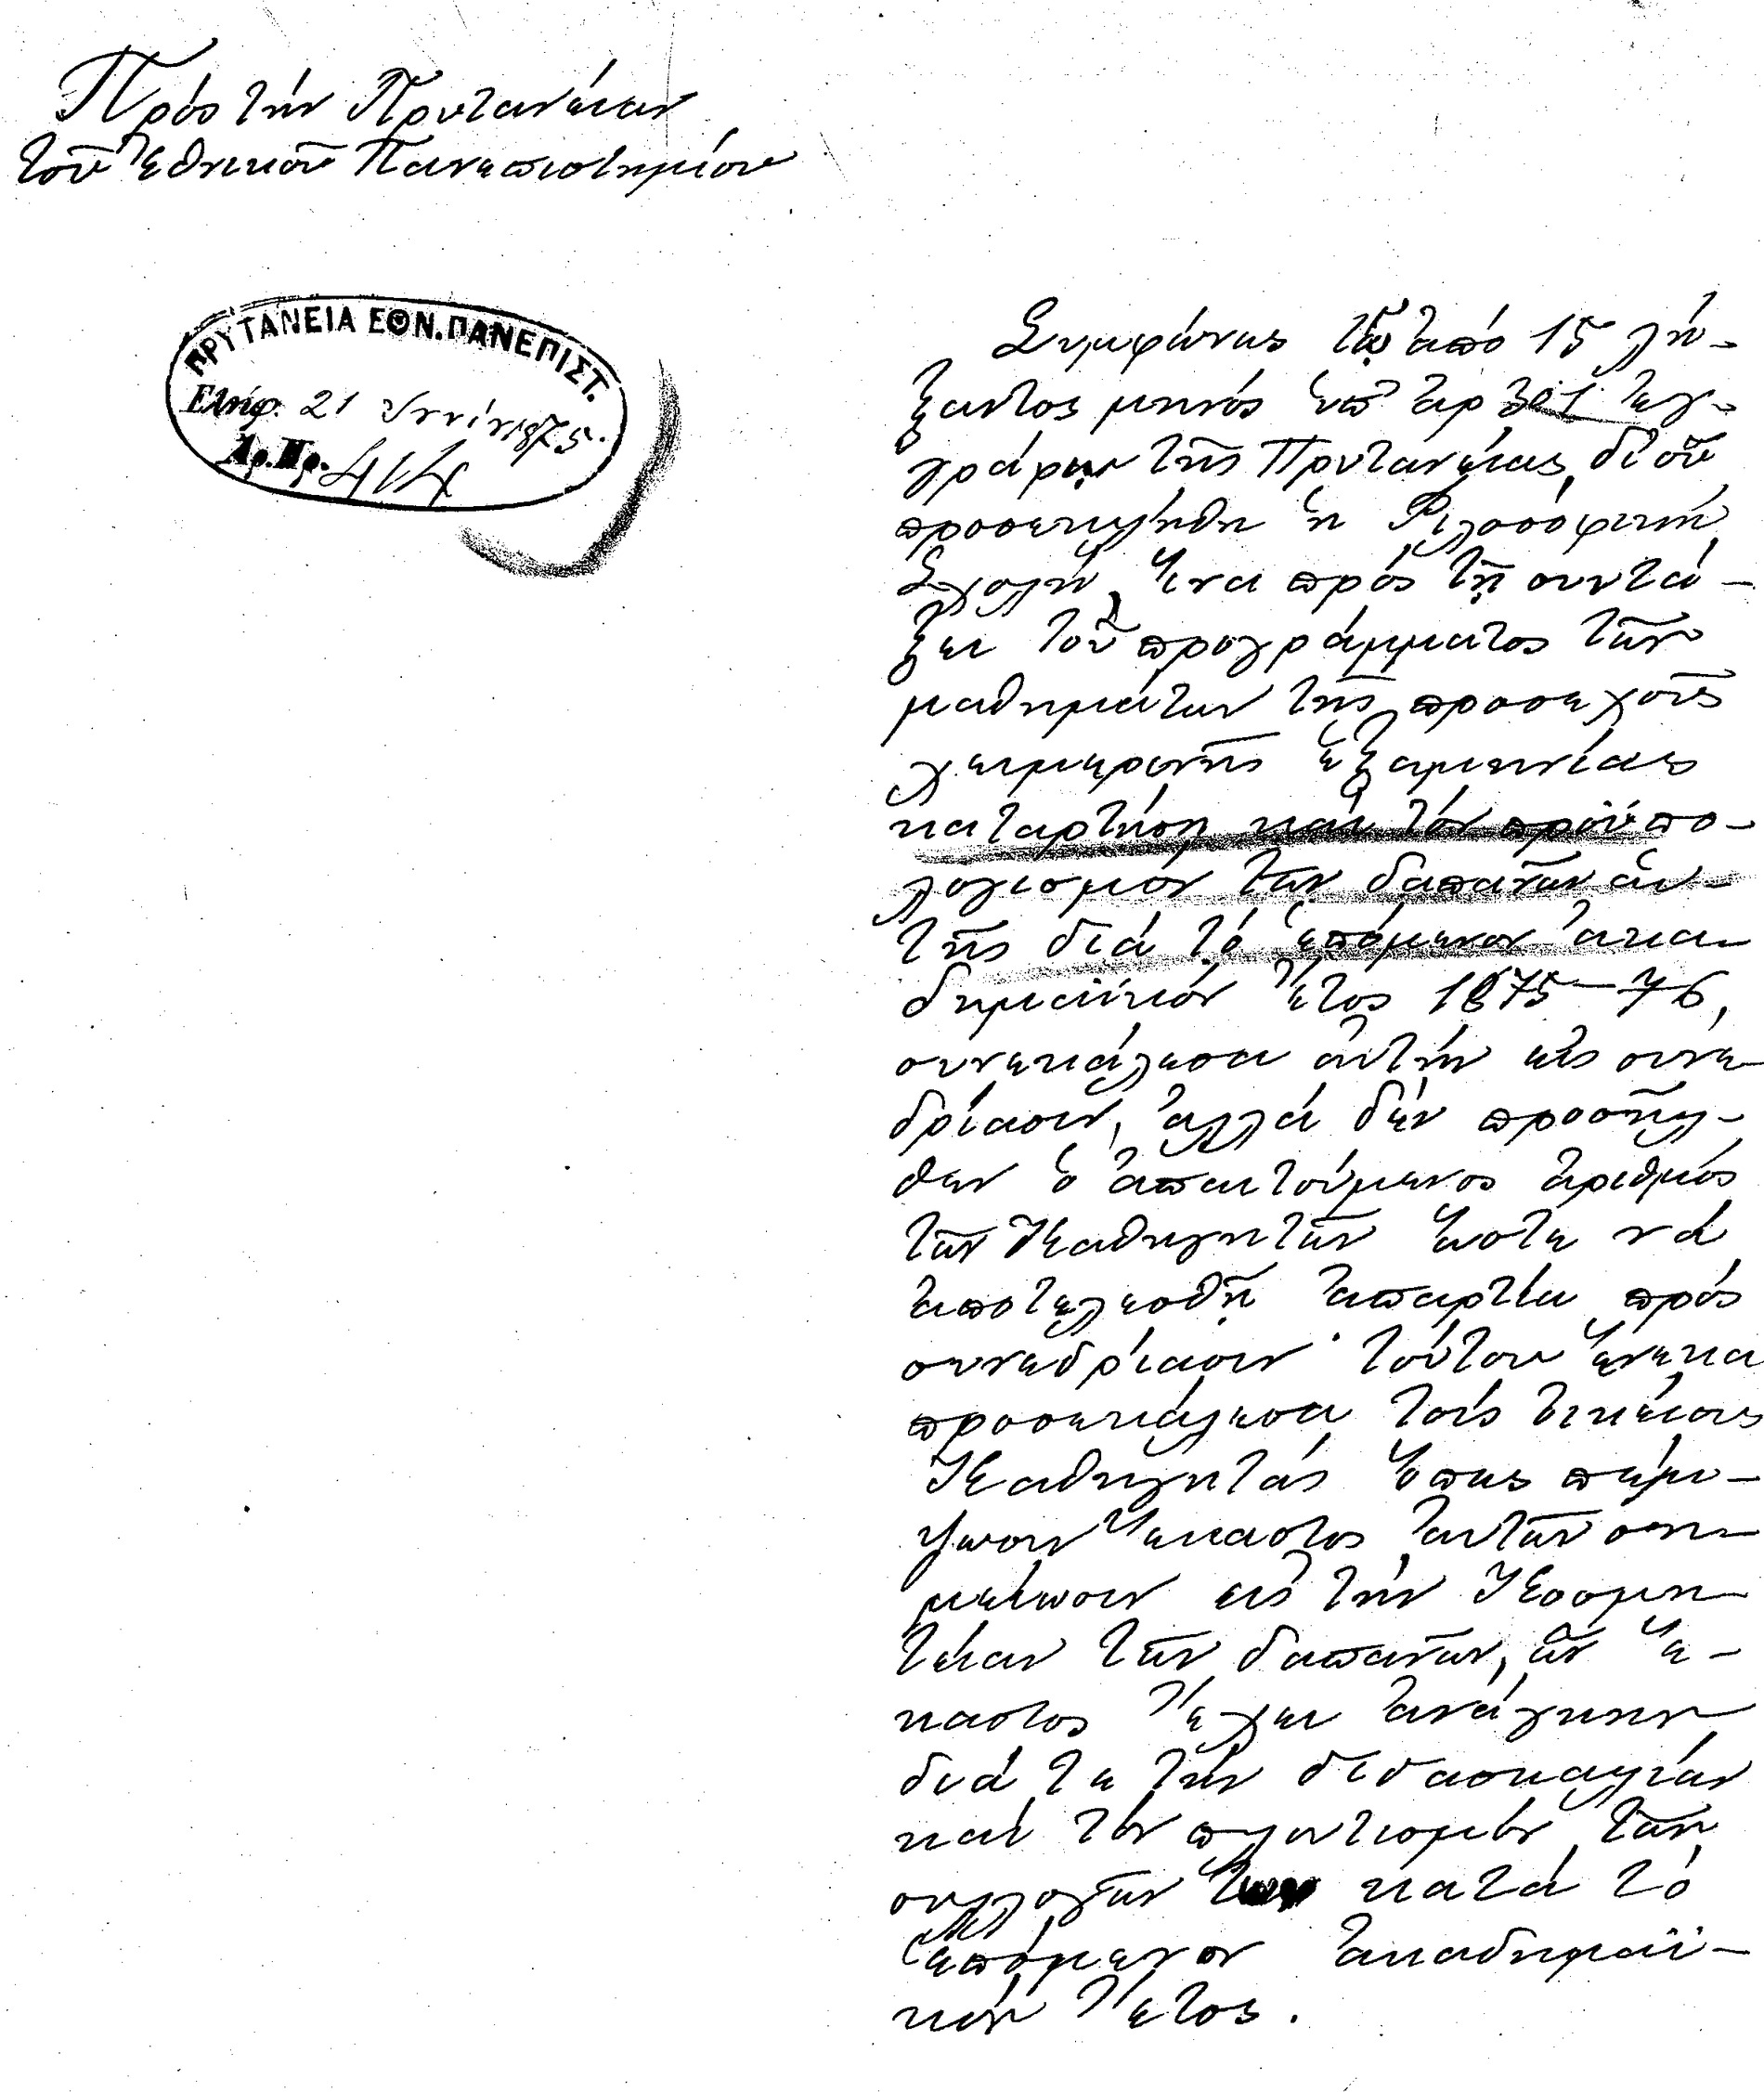 Πρός τήν Πρυτανείαν
τοῦ Ἐθνικοῦ Πανεπιστημίου
ΠΡΥΤΑΝΕΙΑ ΕΘΝ. ΠΑΝΕΠΙΣΤ.
Ελήφ. 21 Ἰουνίου 1875.
Αρ. Πρ. 414
Συμφώνως τῷ ἀπό 15 λή-
ξαντος μηνός ὑπ' ἀρ ἐγ-
γράφῳ τῆς Πρυτανείας, δι' οὗ
προσεκλήθη ἡ Φιλοσοφική
Σχολή, ἵνα πρός τῇ συντά-
ξει τοῦ προγράμματος τῶν
μαθημάτων τῆς προσεχοῦς
χειμερινῆς ἑξαμηνίας
καταρτήσῃ καί τόν προϋπο-
λογισμόν τῶν δαπανῶν αὐ-
τῆς διά τό ἑπόμενον ἀκα-
δημαϊκόν ἔτος 1875-76,
συνεκάλεσα αὐτήν εἰς συνε-
δρίασιν, ἀλλά δέν προσῆλ-
θεν ὁ ἀπαιτούμενος ἀριθμός
τῶν Καθηγητῶν ὥστε νά
ἀποτελεσθῇ ἀπαρτία πρός
συνεδρίασιν· τούτου ἕνεκα
προσεκάλεσα τούς οἰκείους
Καθηγητάς ὅπως πέμ-
ψωσιν ἕκαστος αὐτῶν ση-
μείωσιν εἰς τήν Κοσμη-
τείαν τῶν δαπανῶν, ὧν ἕ-
καστος ἔχει ἀνάγκην
διά τε τήν διδασκαλίαν
καί τόν πλουτισμόν τῶν
συλλογῶν των κατά τό
ἑπόμενον ἀκαδημαϊ-
κόν ἔτος.